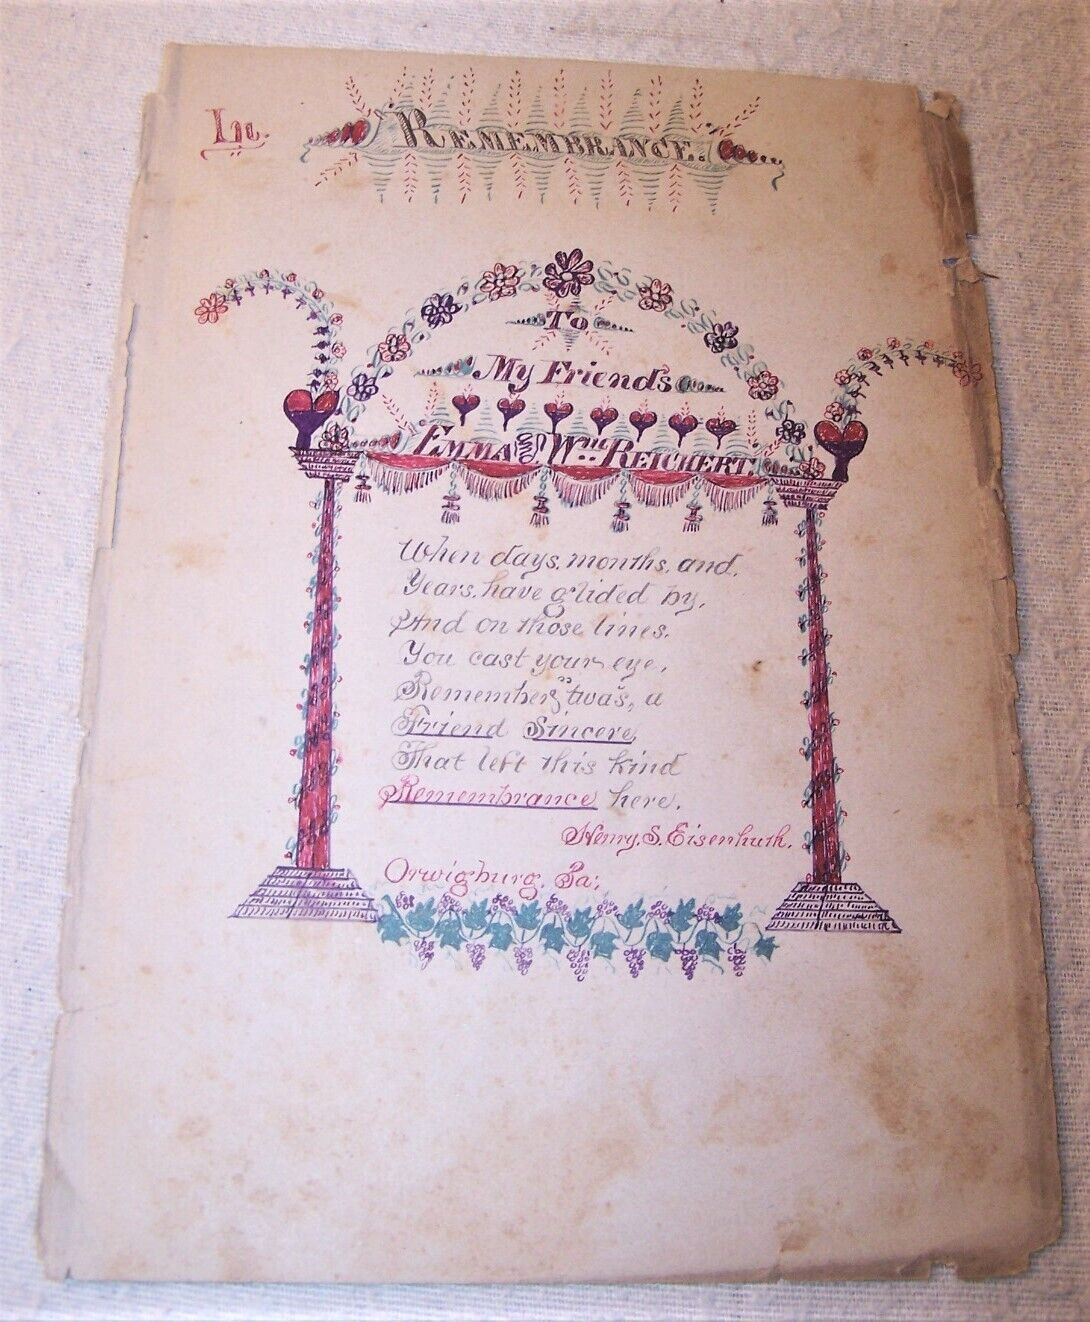 In. Remembrance.
To
My Friends
Emma & Wm. Reichert.
When days, months, and,
Years, have glided by,
And on those lines,
You cast your eye,
Remember, "twas", a
Friend Sincere,
That left this kind
Remembrance here.
Henry, S. Eisenhuth.
Orwigburg, Pa;